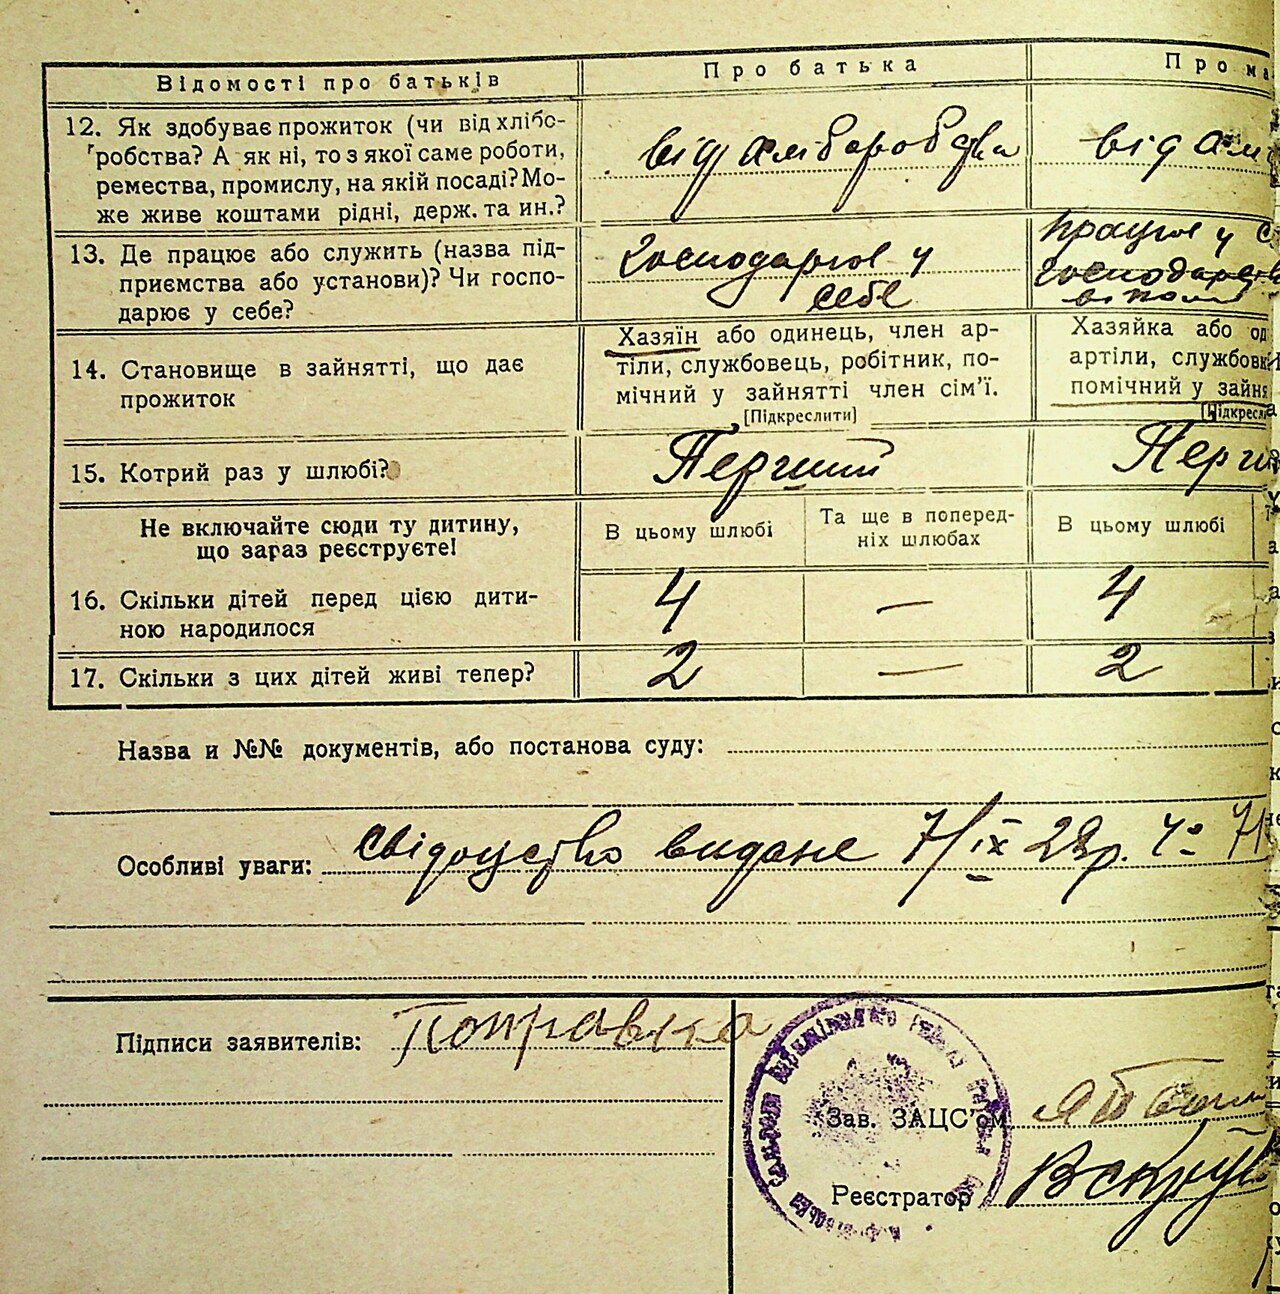 Відомості про батьків
Про батька
Про ма
12. Як здобуває прожиток (чи від хлібо-
робства? А як ні, то з якої саме роботи,
ремества, промислу, на якій посаді? Мо-
же живе коштами рідні, держ. та ин.?
від хліборобства
від
13. Де працює або служить (назва під-
приємства або установи)? Чи госпо-
дарює у себе?
Господарює у
себе
працює у
господарств
14. Становище в зайнятті, що дає
прожиток
Хазяїн або одинець, член ар-
тіли, службовець, робітник, по-
мічний у зайнятті член сім'ї.
[Підкреслити]
Хазяйка або од
артіли, службовк
помічний у зайня
[Підкресл
15. Котрий раз у шлюбі?
Перший
Перш
Не включайте сюди ту дитину,
що зараз реєструєте!
В цьому шлюбі
Та ще в поперед-
ніх шлюбах
В цьому шлюбі
16. Скільки дітей перед цією дити-
ною народилося
4
—
4
17. Скільки з цих дітей живі тепер?
2
—
2
Назва и №№ документів, або постанова суду:
Особливі уваги: свідоцтво видане 7/ІХ 28р. Чо 71
Підписи заявителів: Поправка
Зав. ЗАЦС'ом
Реєстратор